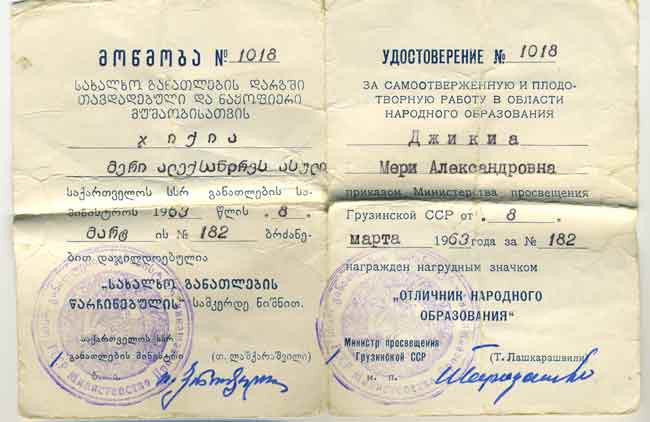 მოწმობა № 1018
სახალხო განათლების დარგში
თავდადებული და ნაყოფიერი
მუშაობისათვის
ჯიქია
მერი ალექსანდრეს ასული
საქართველოს სსრ განათლების სა-
მინისტროს 1963 წლის .8.
მარტ ის № 182 ბრძანე-
ბით დაჯილდოებულია
„სახალხო განათლების
წარჩინებულის“ სამკერდე ნიშნით.
საქართველოს სსრ
განათლების მინისტრი
(თ. ლაშქარაშვილი)
ბ. ა.
УДОСТОВЕРЕНИЕ № 1018
ЗА САМООТВЕРЖЕННУЮ И ПЛОДО-
ТВОРНУЮ РАБОТУ В ОБЛАСТИ
НАРОДНОГО ОБРАЗОВАНИЯ
Джикиа
Мери Александровна
приказом Министерства просвещения
Грузинской ССР от .8.
марта 1963 года за № 182
награжден нагрудным значком
„ОТЛИЧНИК НАРОДНОГО
ОБРАЗОВАНИЯ“
Министр просвещения
Грузинской ССР
(Т. Лашкарашвили)
м. п.